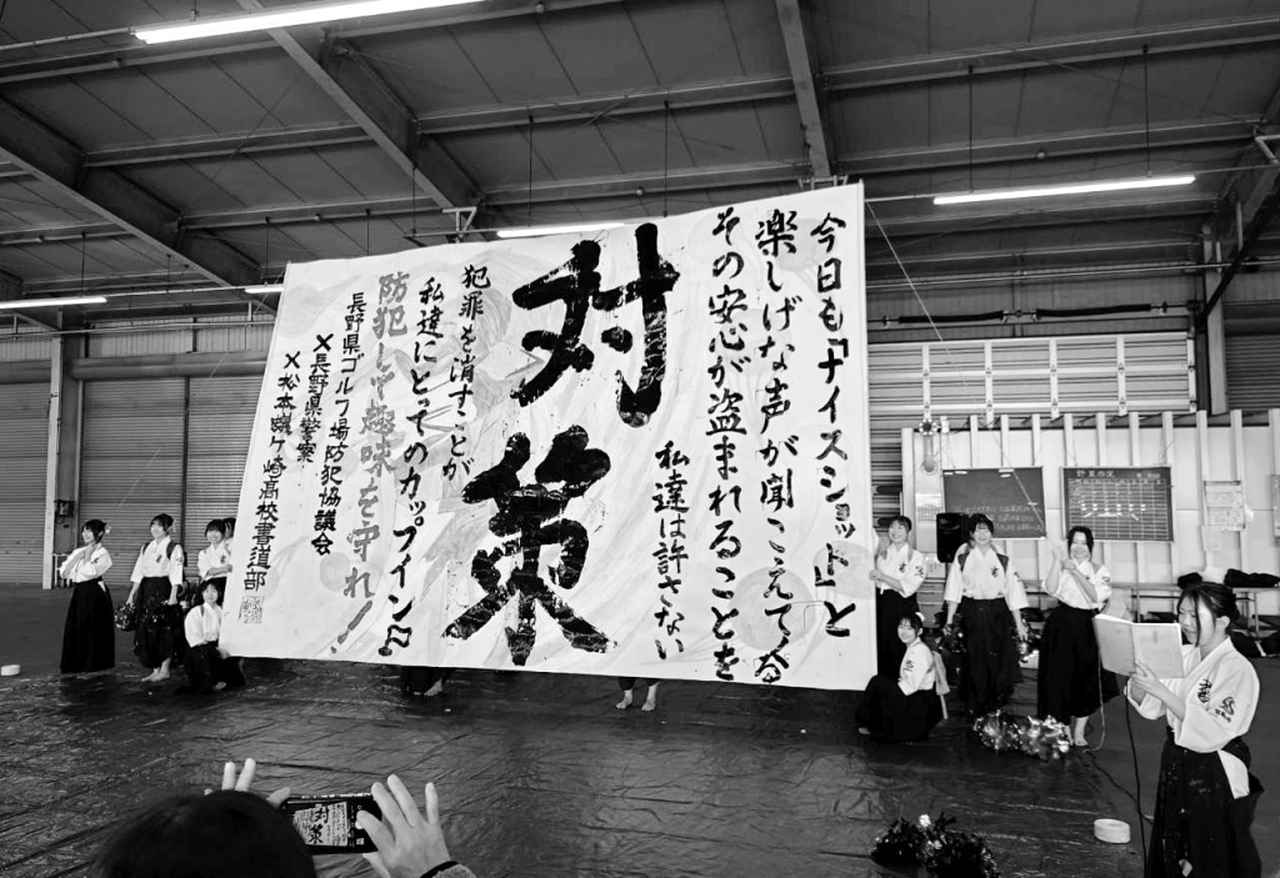 今日も「ナイスショット」と
楽しげな声が聞こえてる
その安心が盗まれることを
私達は許さない
対策
犯罪を消すことが
私達にとってのカップイン!!
防犯して趣味を守れ!
長野県ゴルフ場防犯協議会
×長野県警察
×松本蟻ケ崎高校書道部
対策